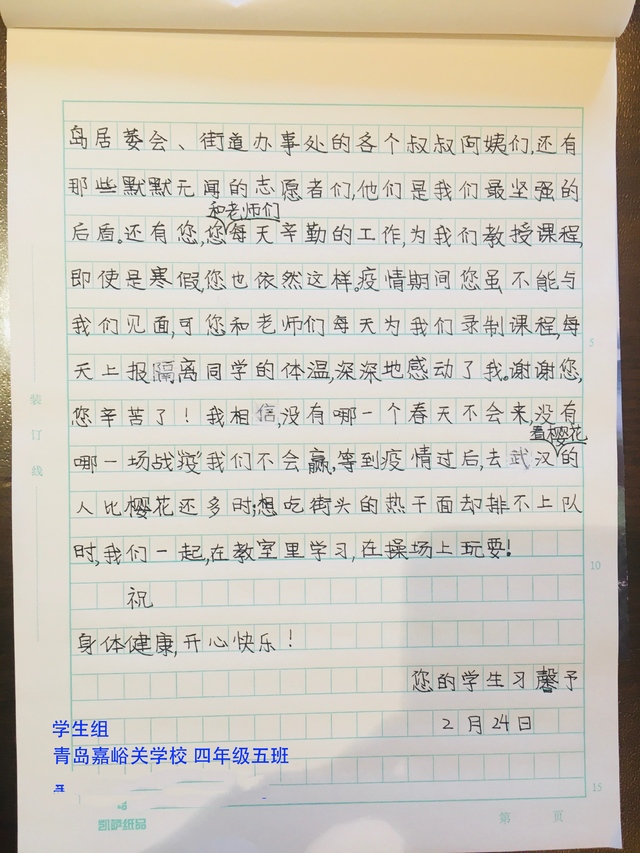 岛居委会、街道办事处的各个叔叔阿姨们,还有
那些默默无闻的志愿者们,他们是我们最坚强的
和老师们
后盾。还有您,您每天辛勤的工作,为我们教授课程,
即使是寒假,您也依然这样。疫情期间您虽不能与
我们见面,可您和老师们每天为我们录制课程,每
5
天上报隔离同学的体温,深深地感动了我。谢谢您,
装
您辛苦了!我相信,没有哪一个春天不会来,没有
订
看樱花
哪一场战“疫”我们不会赢,等到疫情过后,去武汉的
线
人比樱花还多时;想吃街头的热干面却排不上队
时,我们一起,在教室里学习,在操场上玩耍!
10
祝
身体健康,开心快乐!
您的学生习馨予
2月24日
学生组
青岛嘉峪关学校 四年级五班
15
凯萨纸品
第 页